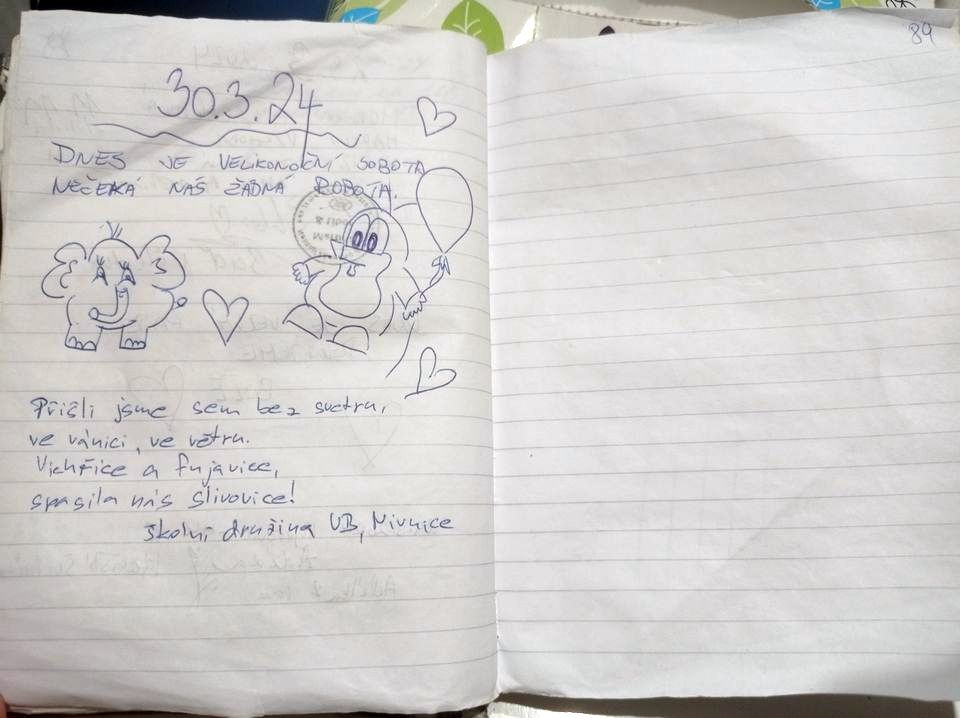 89
30.3.24
DNES JE VELIKONOČNÍ SOBOTA
NEČEKÁ NÁS ŽÁDNÁ ROBOTA.
Přišli jsme sem bez svetru,
ve vánici, ve větru.
Vichřice a fujavice,
spasila nás slivovice!
školní družina UB, Nivnice